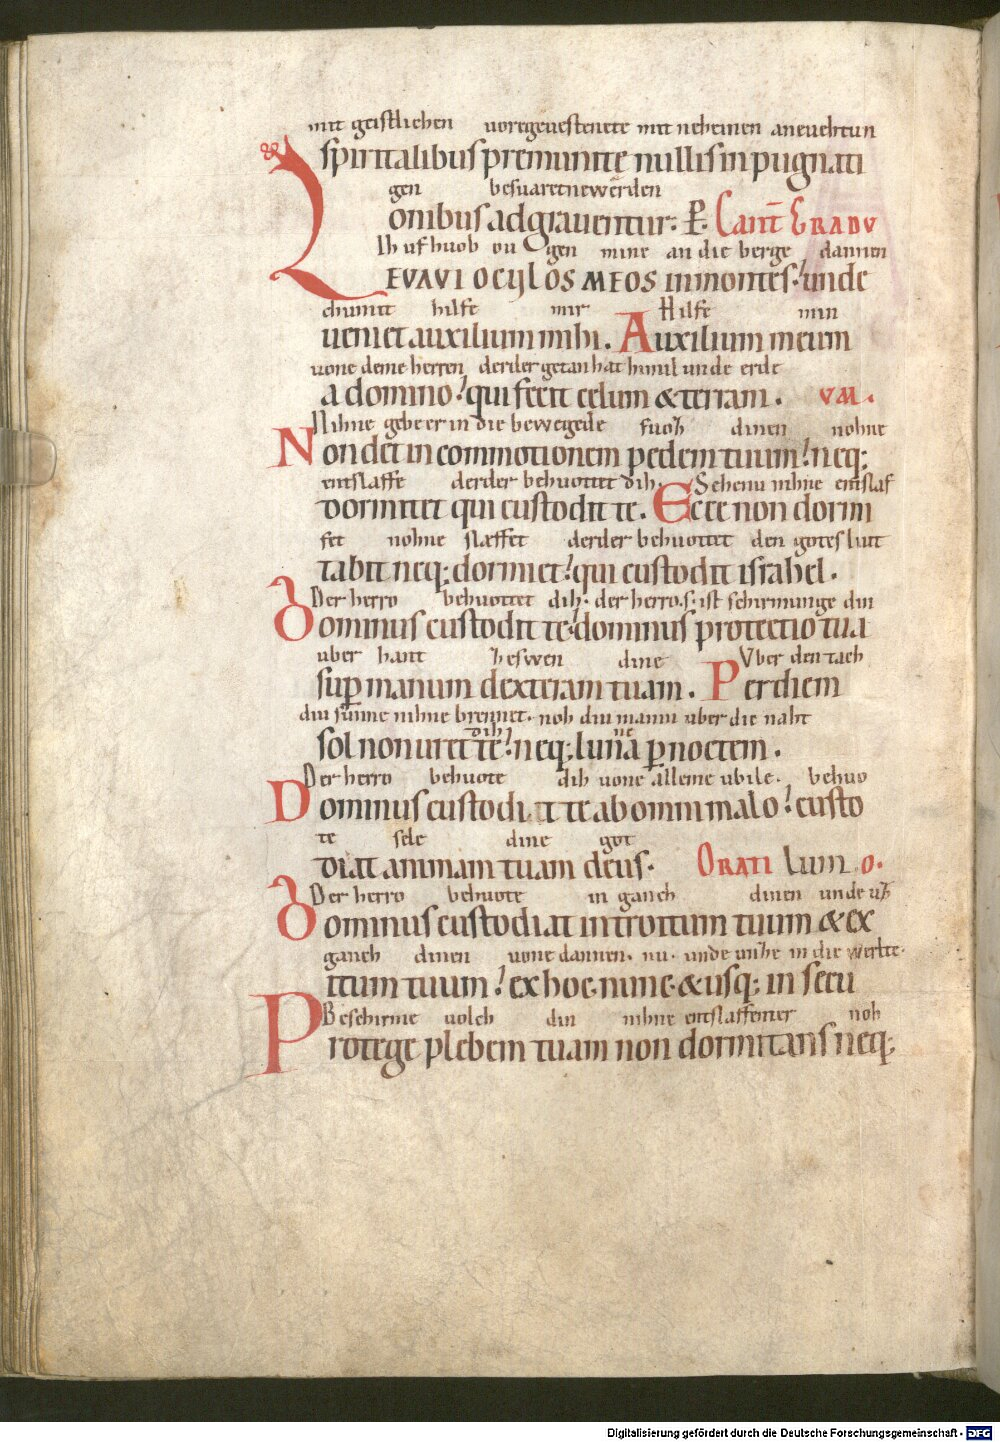 mit geistlichen uoregeuestenete mit neheinen aneuehtun
spiritalibus premunite nullis inpugnati
gen besuaret newerden
onibus adgrauentur. P. Cant Gradu
Ih uf huob ou gen mine an die berge dannen
LEVAVI OCULOS MEOS in montes. unde
chumit hilfe mir Hilfe min
ueniet auxilium mihi. Auxilium meum
uone deme herren derder getan hat himil unde erde
a domino. qui fecit celum & terram. VM.
Nihne gebe er in die bewegede fuoz dinen nohne
Non det in commotionem pedem tuum. neq;
entslaffe derder behuottet dih. Sehenu nihne entslaf
dormitet qui custodit te. Ecce non dormi
fet nohne slæffet derder behuottet den gotes liut
tabit neq; dormiet. qui custodit israhel.
Der herro behuottet dih. der herro.s. ist schirmunge din
Dominus custodit te. dominus protectio tua
uber hant zeswen dine Vber den tach
sup manum dexteram tuam. Per diem
diu sunne nihne brennet. noh diu mann uber die naht
dih ne
sol non uret te. neq; luna p noctem.
Der herro behuote dih uone alleme ubile. behuo
Dominus custodiat te ab omni malo. custo
te sele dine got
diat animam tuam deus. ORATI lum O.
Der herro behuote in ganch dinen unde uz
Dominus custodiat introitum tuum & ex
ganch dinen uone dannen. nu. unde unze in die werlte.
itum tuum. ex hoc nunc. & usq; in secu
Beschirme uolch din nihne entslaffenter noh
Protege plebem tuam non dormitans neq;
Digitalisierung gefördert durch die Deutsche Forschungsgemeinschaft - DFG